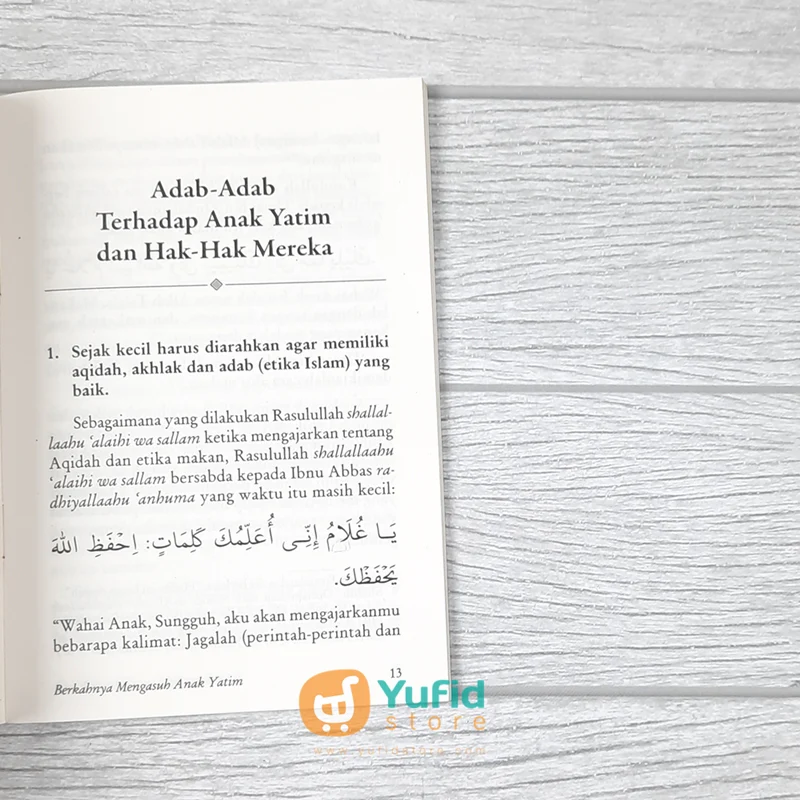 Adab-Adab
Terhadap Anak Yatim
dan Hak-Hak Mereka
1. Sejak kecil harus diarahkan agar memiliki
aqidah, akhlak dan adab (etika Islam) yang
baik.
Sebagaimana yang dilakukan Rasulullah shallal-
laahu ‘alaihi wa sallam ketika mengajarkan tentang
Aqidah dan etika makan, Rasulullah shallallaahu
‘alaihi wa sallam bersabda kepada Ibnu Abbas ra-
dhiyallaahu ‘anhuma yang waktu itu masih kecil:
يَـا غُلَامُ إِنِّـى أُعَلِّمُكَ كَلِمَاتٍ: اِحْفَظِ اللهَ
يَحْفَظْكَ.
“Wahai Anak, Sungguh, aku akan mengajarkanmu
bebarapa kalimat: Jagalah (perintah-perintah dan
Berkahnya Mengasuh Anak Yatim
13
Yufid
store
www.yufidstore.com